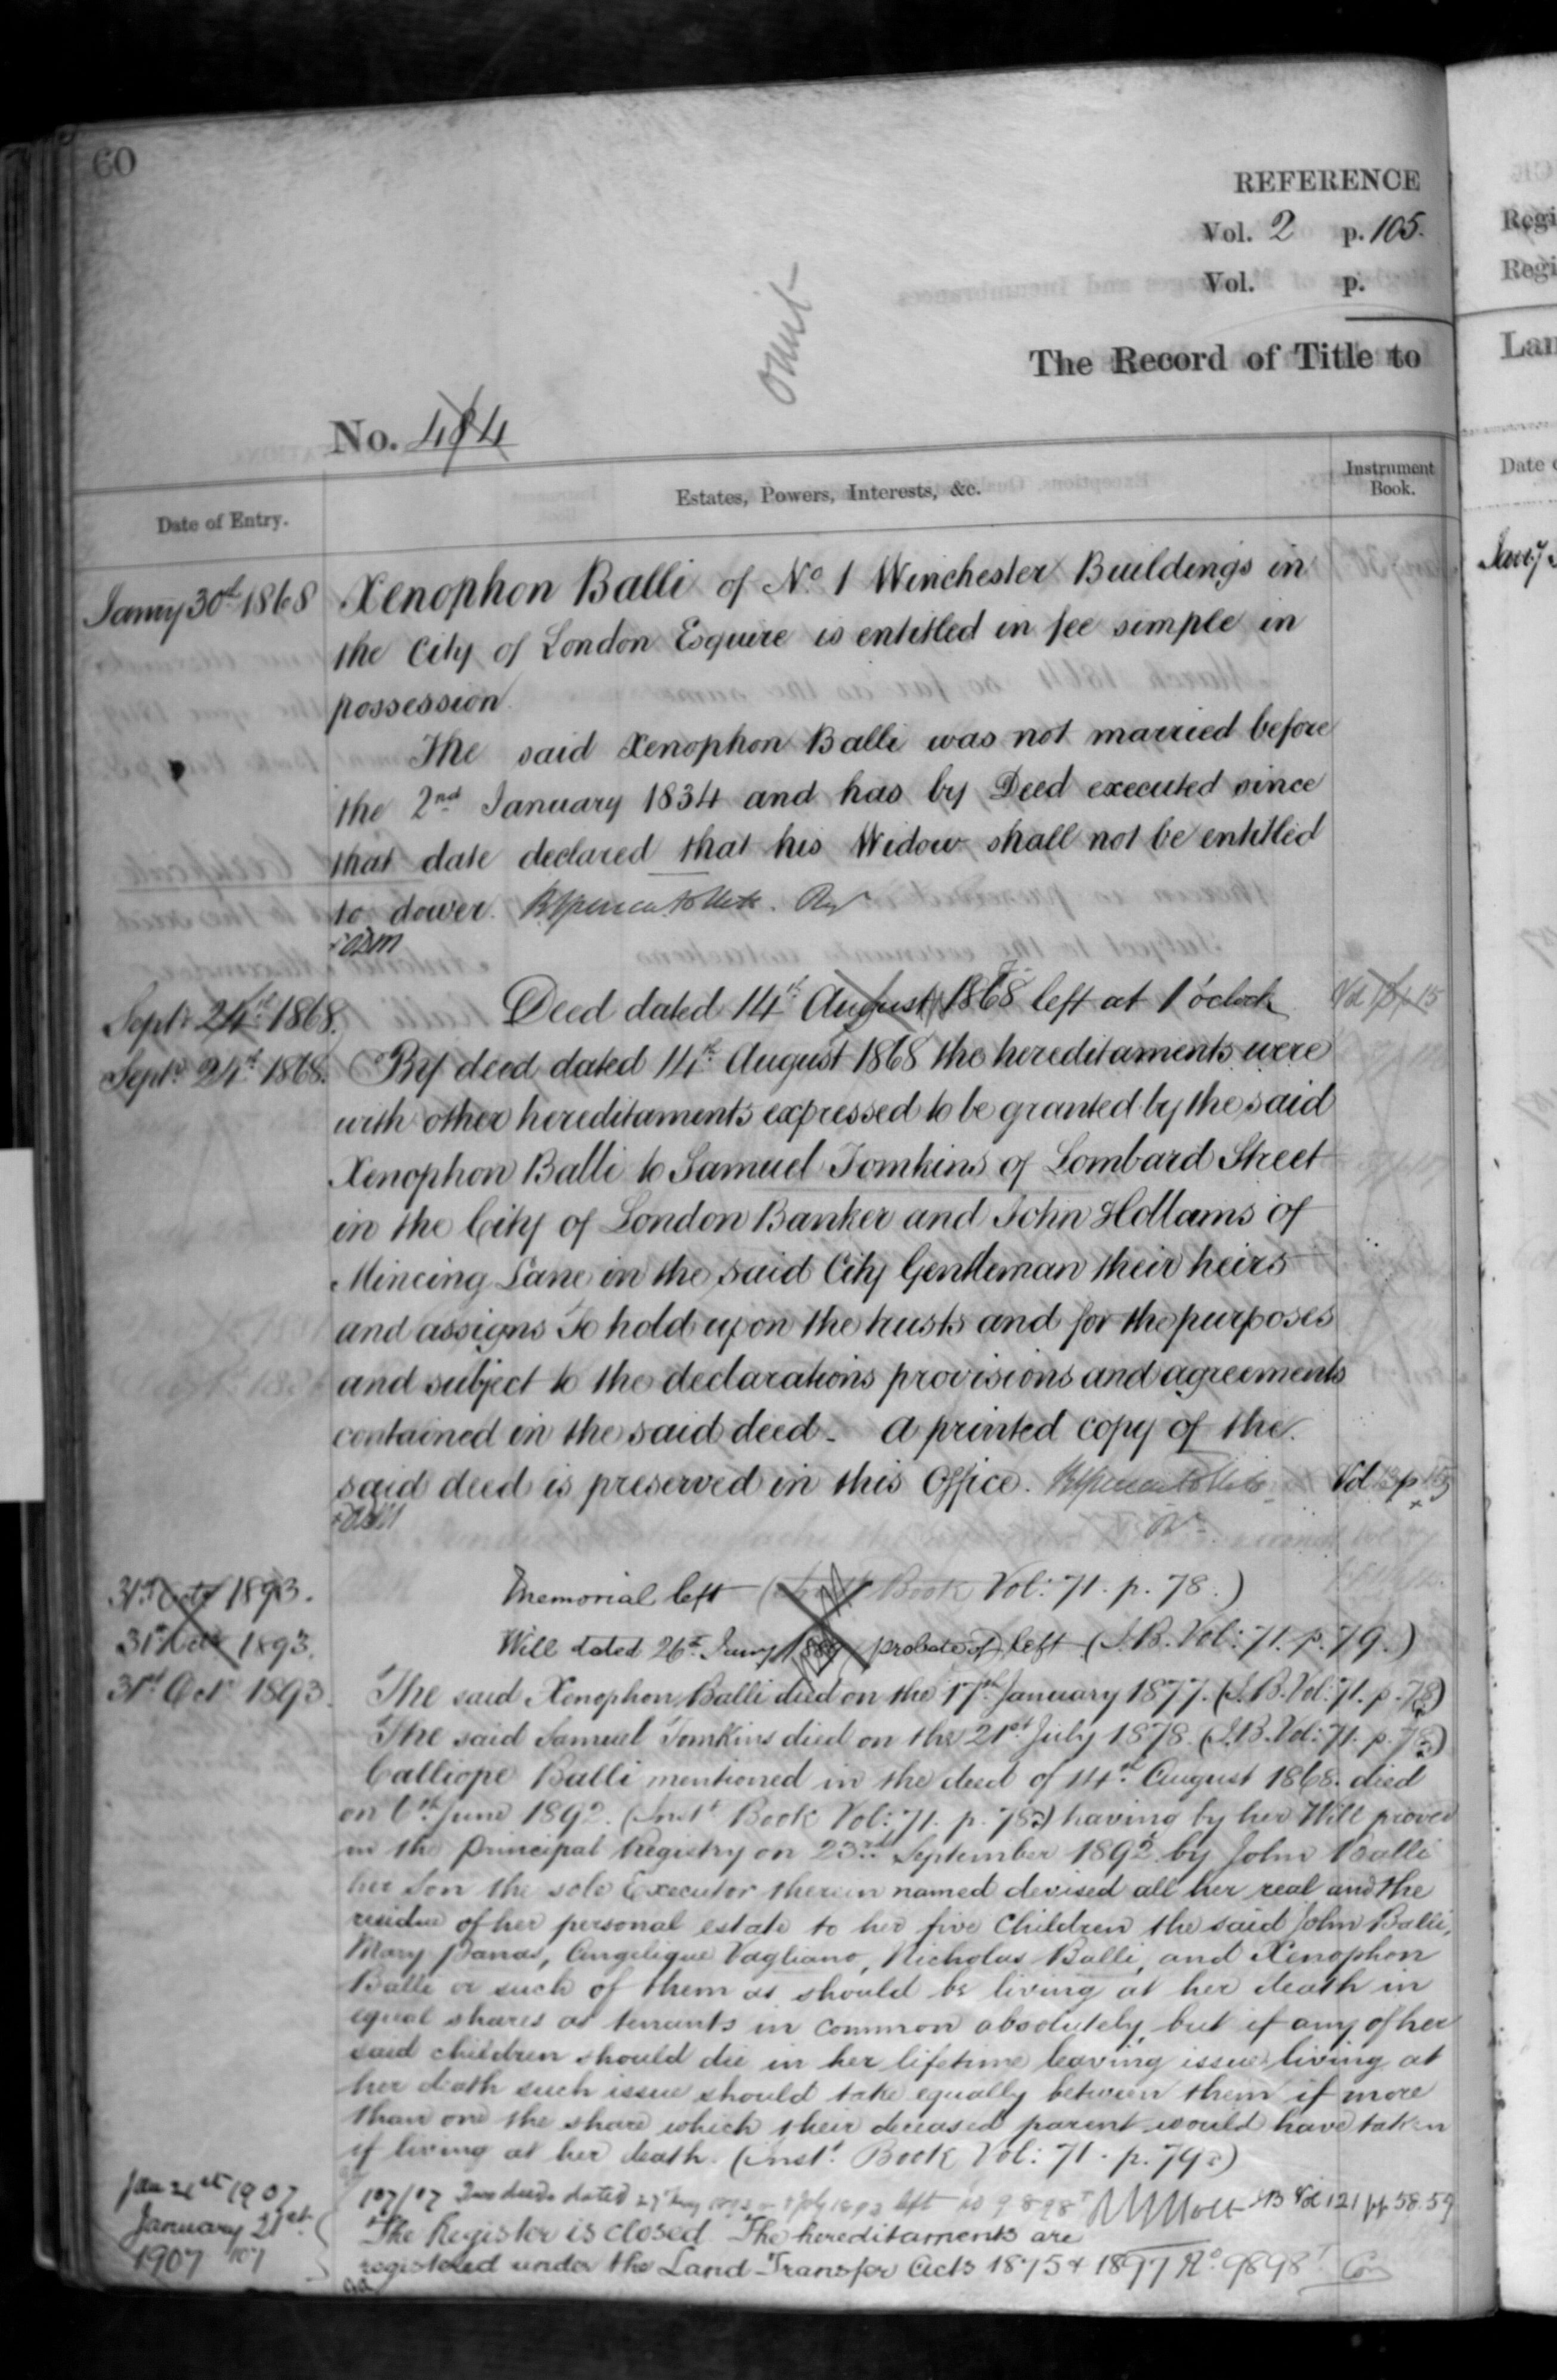 60
REFERENCE
Vol. 2 p. 105.
Vol. p.
omit
The Record of Title to
No. 484
Date of Entry.
Estates, Powers, Interests, &c.
Instrument Book.
Jany 30th 1868 Xenophon Balli of No 1 Winchester Buildings in
the City of London Esquire is entitled in fee simple in
possession.
The said Xenophon Balli was not married before
the 2nd January 1834 and has by Deed executed since
that date declared that his Widow shall not be entitled
to dower.
Sept. 24th 1868. Deed dated 14th August 1868 left at 1 o'clock
Sept. 24th 1868. By deed dated 14th August 1868 the hereditaments were
with other hereditaments expressed to be granted by the said
Xenophon Balli to Samuel Tomkins of Lombard Street
in the City of London Banker and John Hollams of
Mincing Lane in the said City Gentleman their heirs
and assigns To hold upon the trusts and for the purposes
and subject to the declarations provisions and agreements
contained in the said deed. A printed copy of the
said deed is preserved in this Office.
31st Octr 1893. Memorial left (Inst. Book Vol: 71. p. 78.)
31st Octr 1893. Will dated 26th Jany 1889 (probate of) left (I.B. Vol: 71. p. 79.)
31st Octr 1893. The said Xenophon Balli died on the 17th January 1877. (I.B. Vol: 71. p. 78)
The said Samuel Tomkins died on the 21st July 1878. (I.B. Vol: 71. p. 78)
Calliope Balli mentioned in the deed of 14th August 1868. died
on 6th June 1892. (Inst. Book Vol: 71. p. 78) having by her Will proved
in the Principal Registry on 23rd September 1892 by John Balli
her Son the sole Executor therein named devised all her real and the
residue of her personal estate to her five Children the said John Balli,
Mary Panas, Angelique Vagliano, Nicholas Balli, and Xenophon
Balli or such of them as should be living at her death in
equal shares as tenants in common absolutely, but if any of her
said children should die in her lifetime leaving issue living at
her death such issue should take equally between them if more
than one the share which their deceased parent would have taken
if living at her death. (Inst. Book Vol: 71. p. 79)
Jan 21st 1907 107/07 Two deeds dated left IB Vol 121 pp 58.59
January 21st The Register is closed. The hereditaments are
1907 107 registered under the Land Transfer Acts 1875 & 1897 No. 9898